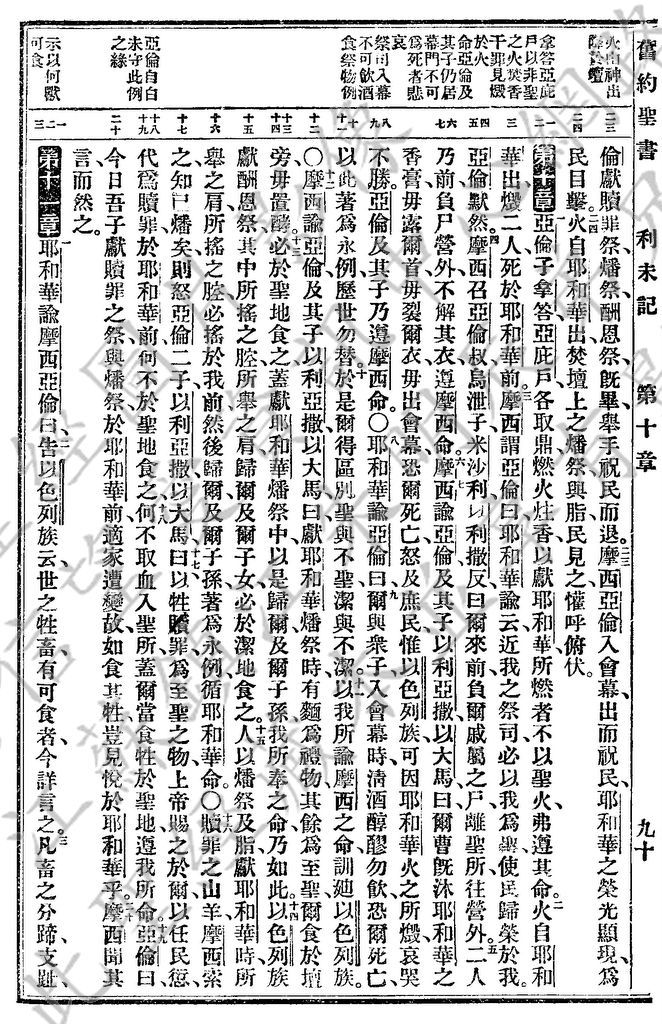 舊約聖書 利未記 第十章 九十
火由神出
拿答亞庇
戶以非聖
之火焚香
干罪見燬
於火
命亞倫及
其子仍居
幕門不可
爲死者悲
哀
祭司入幕
不可飲酒
食祭物例
亞倫自白
未守此例
之緣
示以何獸
可食
二三
二四
一二
三
四五
六七
八九
十
十一
十二
十三
十四
十五
十六
十七
十八
十九
二十
一二
三
倫獻贖罪祭燔祭酬恩祭旣畢舉手祝民而退、二三摩西亞倫入會幕出而祝民耶和華之榮光顯現、爲
民目擊、二四火自耶和華出焚壇上之燔祭與脂民見之懽呼俯伏。
第十章 一亞倫子拿答亞庇戶各取鼎燃火炷香以獻耶和華所燃者不以聖火弗遵其命、二火自耶和
華出燬二人死於耶和華前、三摩西謂亞倫曰耶和華諭云近我之祭司必以我爲聖使民歸榮於我、
亞倫默然、四摩西召亞倫叔烏泄子米沙利以利撒反曰爾來前負爾戚屬之尸離聖所往營外、五二人
乃前負尸營外不解其衣遵摩西命、六七摩西諭亞倫及其子以利亞撒以大馬曰爾曹旣沐耶和華之
香膏毋露爾首毋裂爾衣毋出會幕恐爾死亡怒及庶民惟以色列族可因耶和華火之所燬哀哭
不勝亞倫及其子乃遵摩西命、〇八耶和華諭亞倫曰九爾與衆子入會幕時淸酒醇醪勿飲恐爾死亡
以此著爲永例歷世勿替、十於是爾得區別聖與不聖潔與不潔、十一以我所諭摩西之命訓廸以色列族。
〇十二摩西諭亞倫及其子以利亞撒以大馬曰獻耶和華燔祭時有麵爲禮物其餘爲至聖爾食於壇
旁毋置酵、十三必於聖地食之蓋獻耶和華燔祭中以是歸爾及爾子孫我所奉之命乃如此、十四以色列族
獻酬恩祭其中所搖之腔所舉之肩歸爾及爾子女必於潔地食之、十五人以燔祭及脂獻耶和華時所
舉之肩所搖之腔必搖於我前然後歸爾及爾子孫著爲永例循耶和華命、〇十六贖罪之山羊摩西索
之知已燔矣則怒亞倫二子以利亞撒以大馬曰十七以牲贖罪爲至聖之物上帝賜之於爾以任民愆、
代爲贖罪於耶和華前何不於聖地食之、十八何不取血入聖所蓋爾當食牲於聖地遵我所命、十九亞倫曰
今日吾子獻贖罪之祭與燔祭於耶和華前適家遭變故如食其牲豈見悅於耶和華乎、二十摩西聞其
言而然之。
第十一章 一耶和華諭摩西亞倫曰二告以色列族云世之牲畜有可食者今詳言之、三凡畜之分蹄支趾、